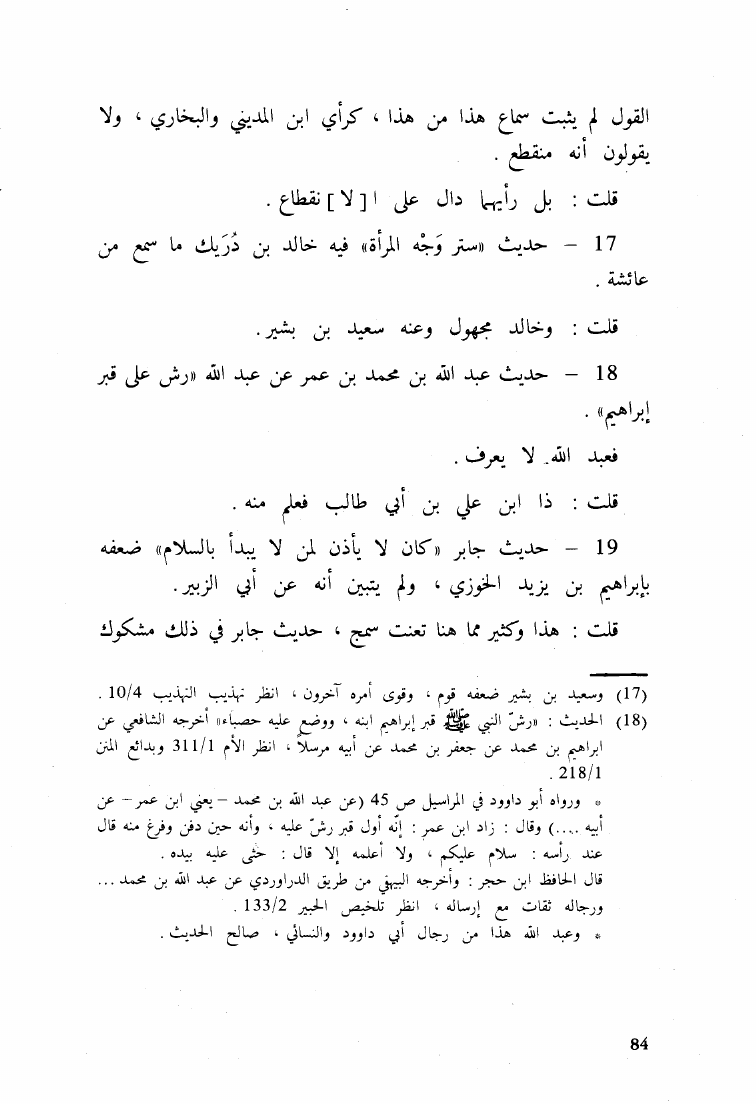 القول لم يثبت سماع هذا من هذا ، كرأي ابن المديني والبخاري ، ولا
يقولون أنه منقطع .
قلت : بل رأيهما دال على ا [ لا ] نقطاع .
17 – حديث «ستر وَجْه المرأة» فيه خالد بن دُرَيك ما سمع من
عائشة .
قلت : وخالد مجهول وعنه سعيد بن بشير.
18 – حديث عبد الله بن محمد بن عمر عن عبد الله «رش على قبر
إبراهيم» .
فعبد الله لا يعرف .
قلت : ذا ابن علي بن أبي طالب فعلم منه .
19 – حديث جابر «كان لا يأذن لمن لا يبدأ بالسلام» ضعفه
بإبراهيم بن يزيد الخوزي ، ولم يتبين أنه عن أبي الزبير.
قلت : هذا وكثير مما هنا تعنت سمج ، حديث جابر في ذلك مشكوك
(17) وسعيد بن بشير ضعفه قوم ، وقوى أمره آخرون ، انظر تهذيب التهذيب 10/4 .
(18) الحديث : «رشّ النبي ﷺ قبر إبراهيم ابنه ، ووضع عليه حصباء» أخرجه الشافعي عن
ابراهيم بن محمد عن جعفر بن محمد عن أبيه مرسلاً ، انظر الأم 311/1 وبدائع المنن
218/1 .
* ورواه أبو داوود في المراسيل ص 45 (عن عبد الله بن محمد – يعني ابن عمر – عن
أبيه ....) وقال : زاد ابن عمر : إنّه أول قبر رشّ عليه ، وأنه حين دفن وفرغ منه قال
عند رأسه : سلام عليكم ، ولا أعلمه إلا قال : حثى عليه بيده .
قال الحافظ ابن حجر : وأخرجه البيهقي من طريق الدراوردي عن عبد الله بن محمد ...
ورجاله ثقات مع إرساله ، انظر تلخيص الحبير 133/2 .
* وعبد الله هذا من رجال أبي داوود والنسائي ، صالح الحديث .
84